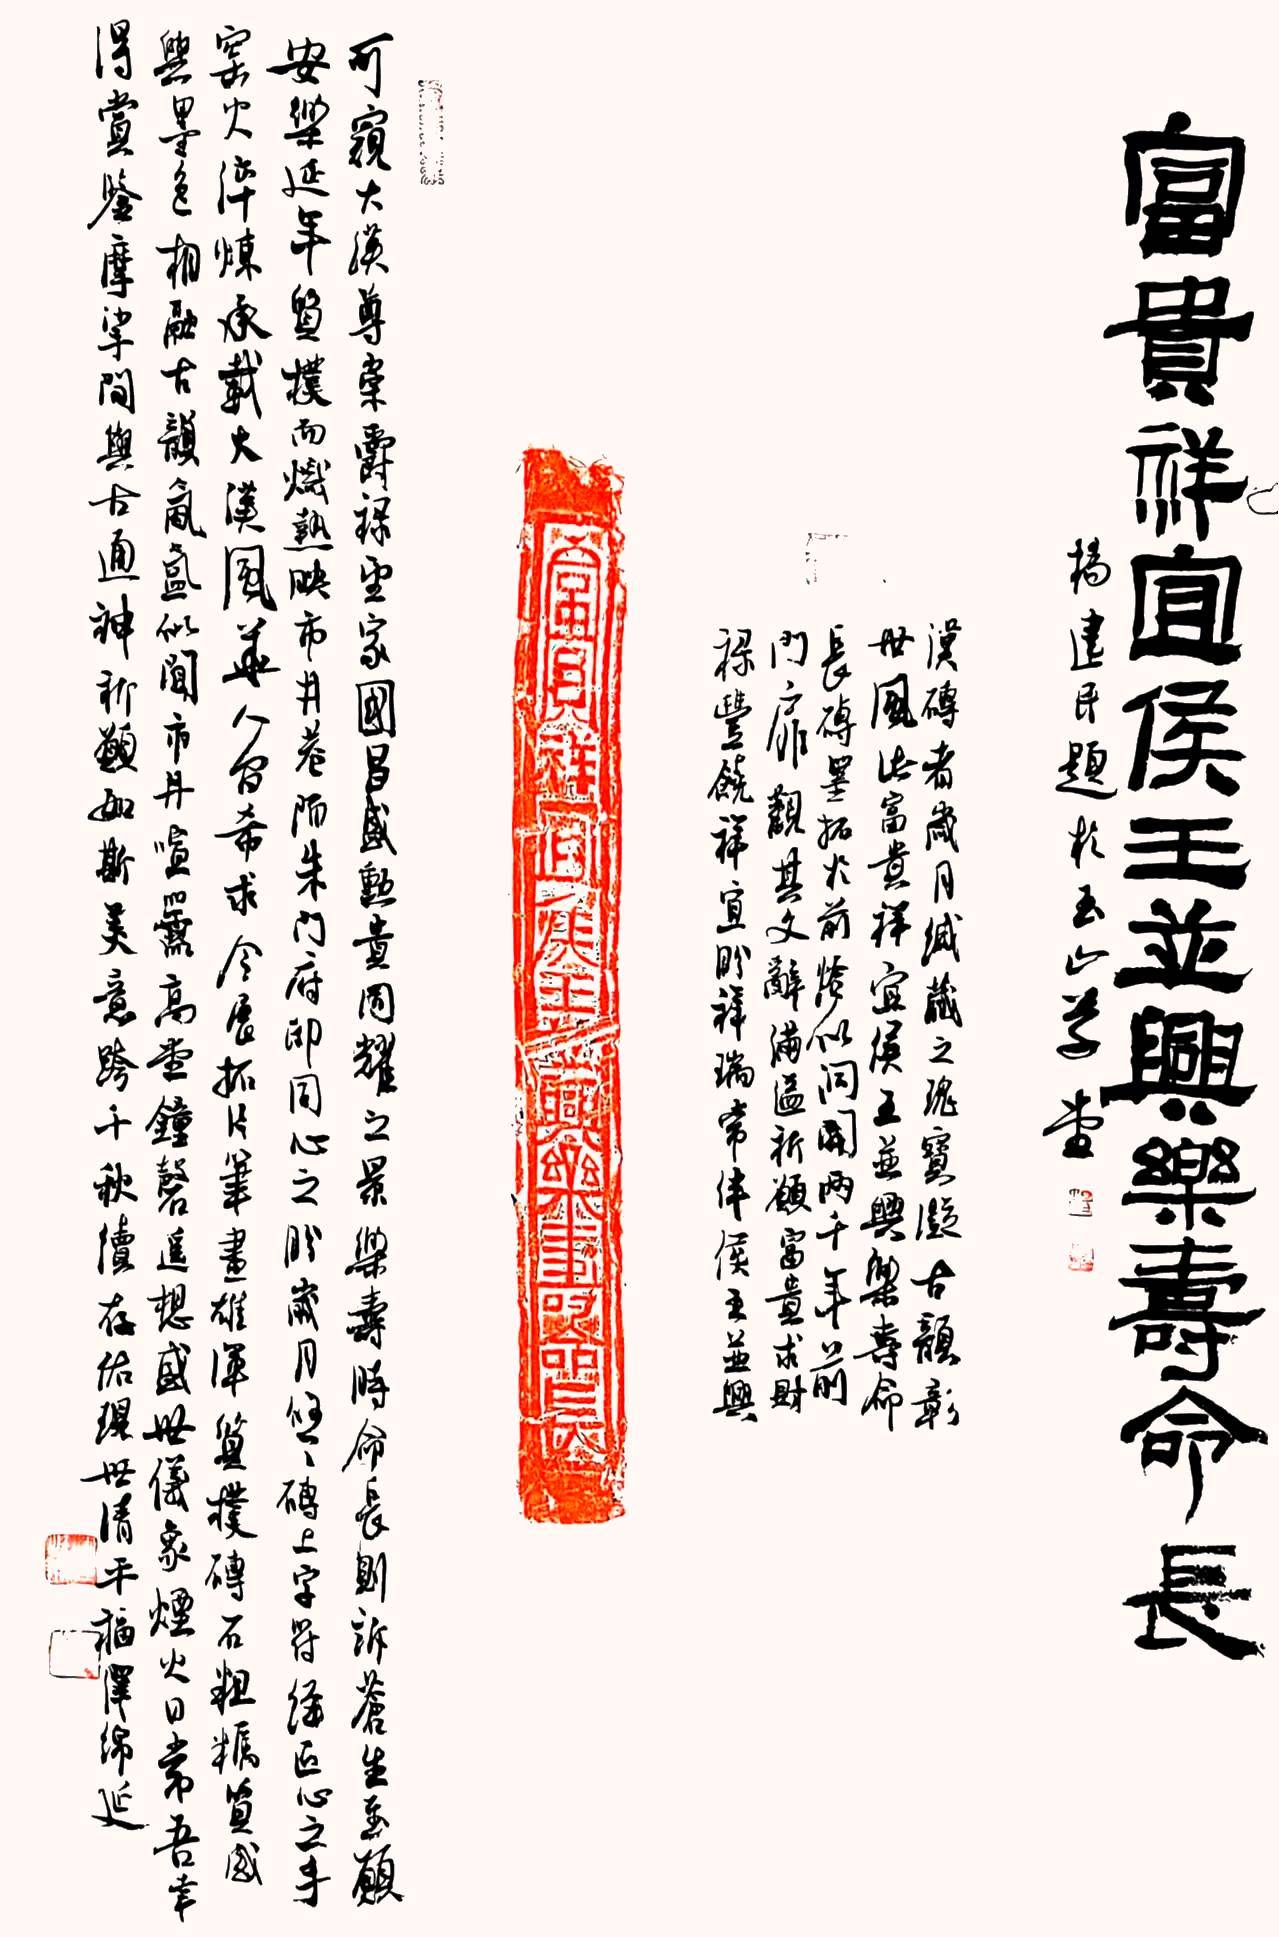 富貴祥宜侯王並興樂壽命長
楊建民題於玉山草堂
漢磚者歲月緘藏之瑰寶凝古韻彰
世風此富貴祥宜侯王並興樂壽命
長磚墨拓於前恍似洞開兩千年前
門扉觀其文辭滿溢祈願富貴求財
祿豐饒祥宜盼祥瑞常伴侯王並興
富貴祥宜侯王並興樂壽命長
可窺大漢尊崇爵祿望家國昌盛勳貴同耀之景樂壽時命長則訴蒼生至願
安樂延年質樸而熾熱映市井巷陌朱門府邸同心之盼歲月悠悠磚上字符經匠心之手
窯火淬煉承載大漢風華人間希求今展拓片筆畫雄渾質樸磚石粗糲質感
與墨色相融古韻氤氳似聞市井喧囂高堂鐘磬遙想盛世儀象煙火日常吾幸
得賞鑒摩挲間與古通神祈願如斯美意跨千秋續存佑現世清平福澤綿延